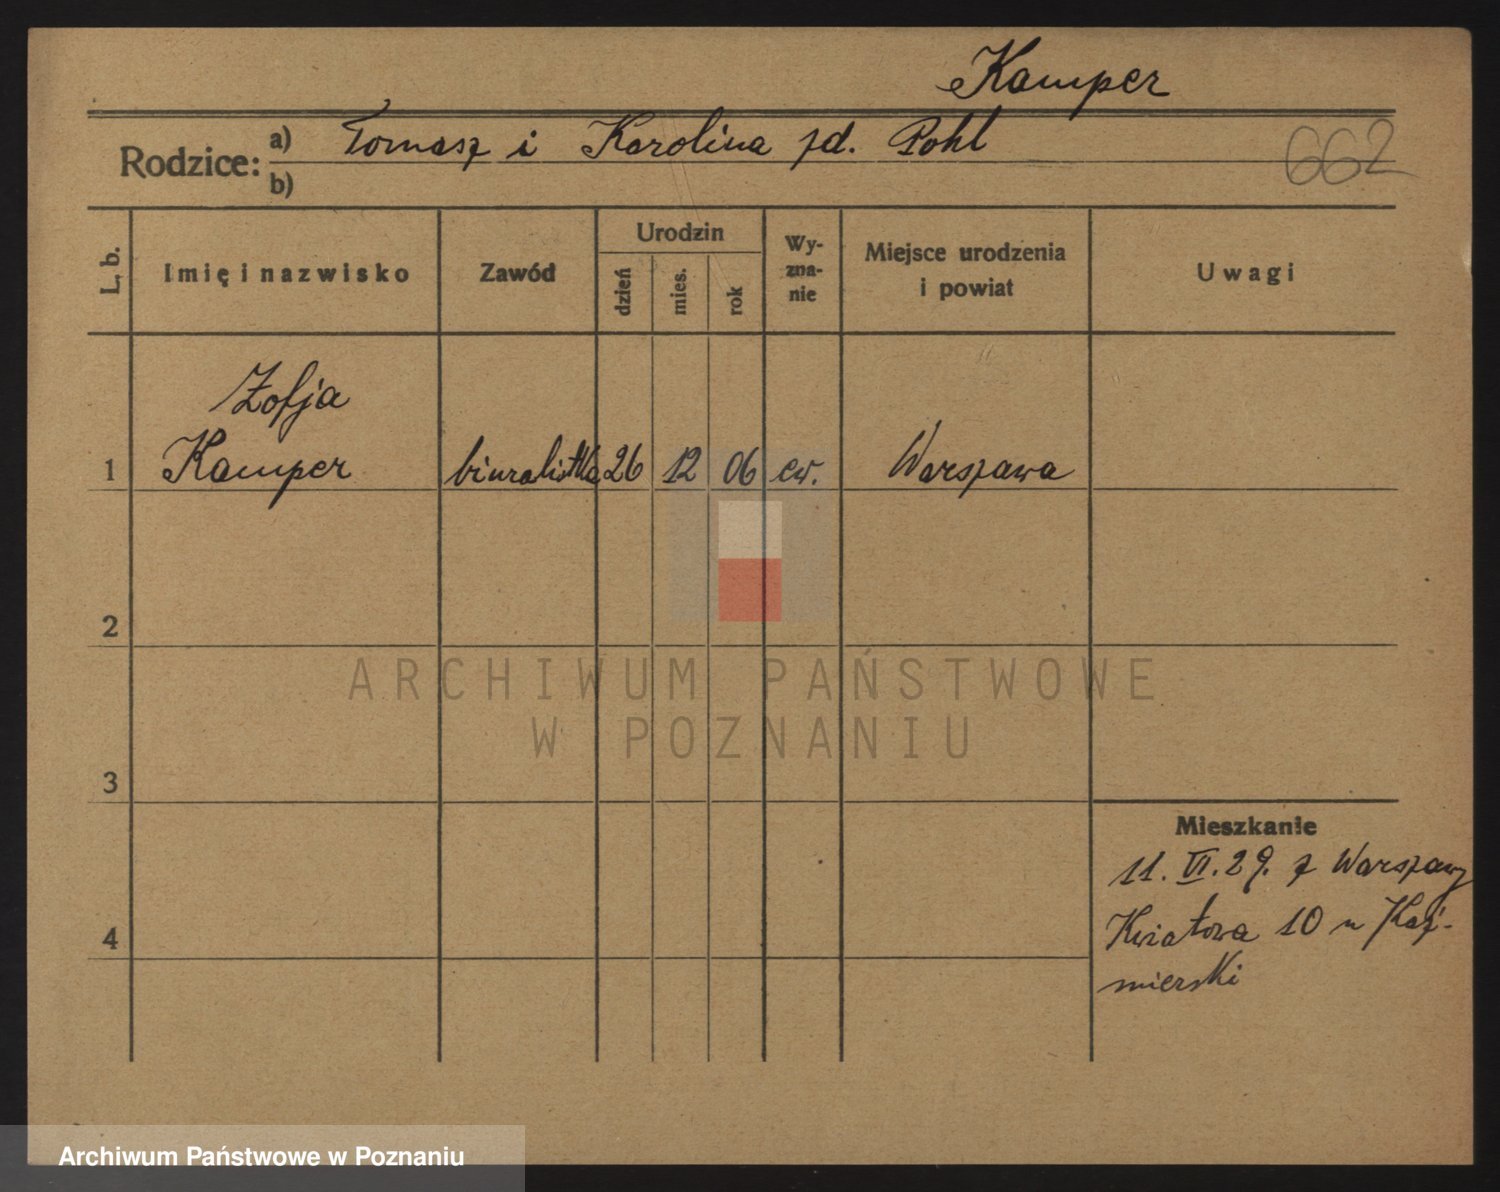 Kamper
Rodzice: a) Tomasz i Karolina zd. Pohl
b)
662
L. b.
Imię i nazwisko
Zawód
Urodzin
dzień
mies.
rok
Wy-
zna-
nie
Miejsce urodzenia
i powiat
Uwagi
Zofja
1 Kamper biuralistka 26 12 06 ew. Warszawa
2
ARCHIWUM PAŃSTWOWE
W POZNANIU
3
Mieszkanie
11. VI. 29. z Warszawy
4
Kwiatowa 10 u Kaź-
mierski
Archiwum Państwowe w Poznaniu